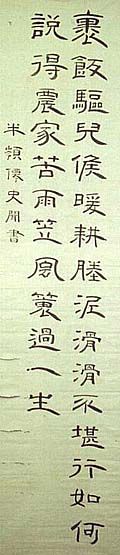 裹飯驅兒候暖耕塍泥滑滑不堪行如何
說得農家苦雨笠風蓑過一生
半嶺懷史聞書